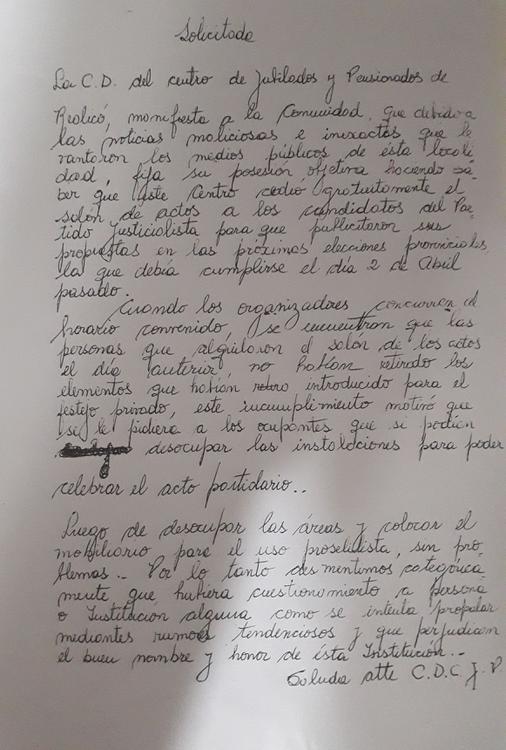 Solicitada
La C.D. del centro de Jubilados y Pensionados de
Realicó, manifiesta a la Comunidad, que debido a
las noticias maliciosas e inexactas que le
vantaron los medios públicos de ésta locali
dad, fija su posesión objetiva haciendo sa-
ber que este Centro cedio gratuitamente el
salón de actos a los candidatos del Pa-
tido Justicialista para que publicitaron sus
propuestas en las próximas elecciones provinciales,
la que debía cumplirse el día 2 de Abril
pasado.
Cuando los organizadores concurren al
horario convenido, se encuentran que las
personas que alquilaron el salón de los actos
el día anterior, no habían retirado los
elementos que habían introducido para el
festejo privado, este incumplimiento motivó que
se le pidiera a los ocupantes que si podian
desocupar las instalaciones para poder
celebrar el acto partidario..
Luego de desocupar las áreas y colocar el
mobiliario para el uso proselitista, sin pro-
blemas.. Por lo tanto desmentimos categórica-
mente que hubiera cuestionamiento a persona
o Institución alguna como se intenta propalar
mediantes rumores tendenciosos y que perjudican
el buen nombre y honor de ésta Institución..
Saluda atte C.D.C J. P.